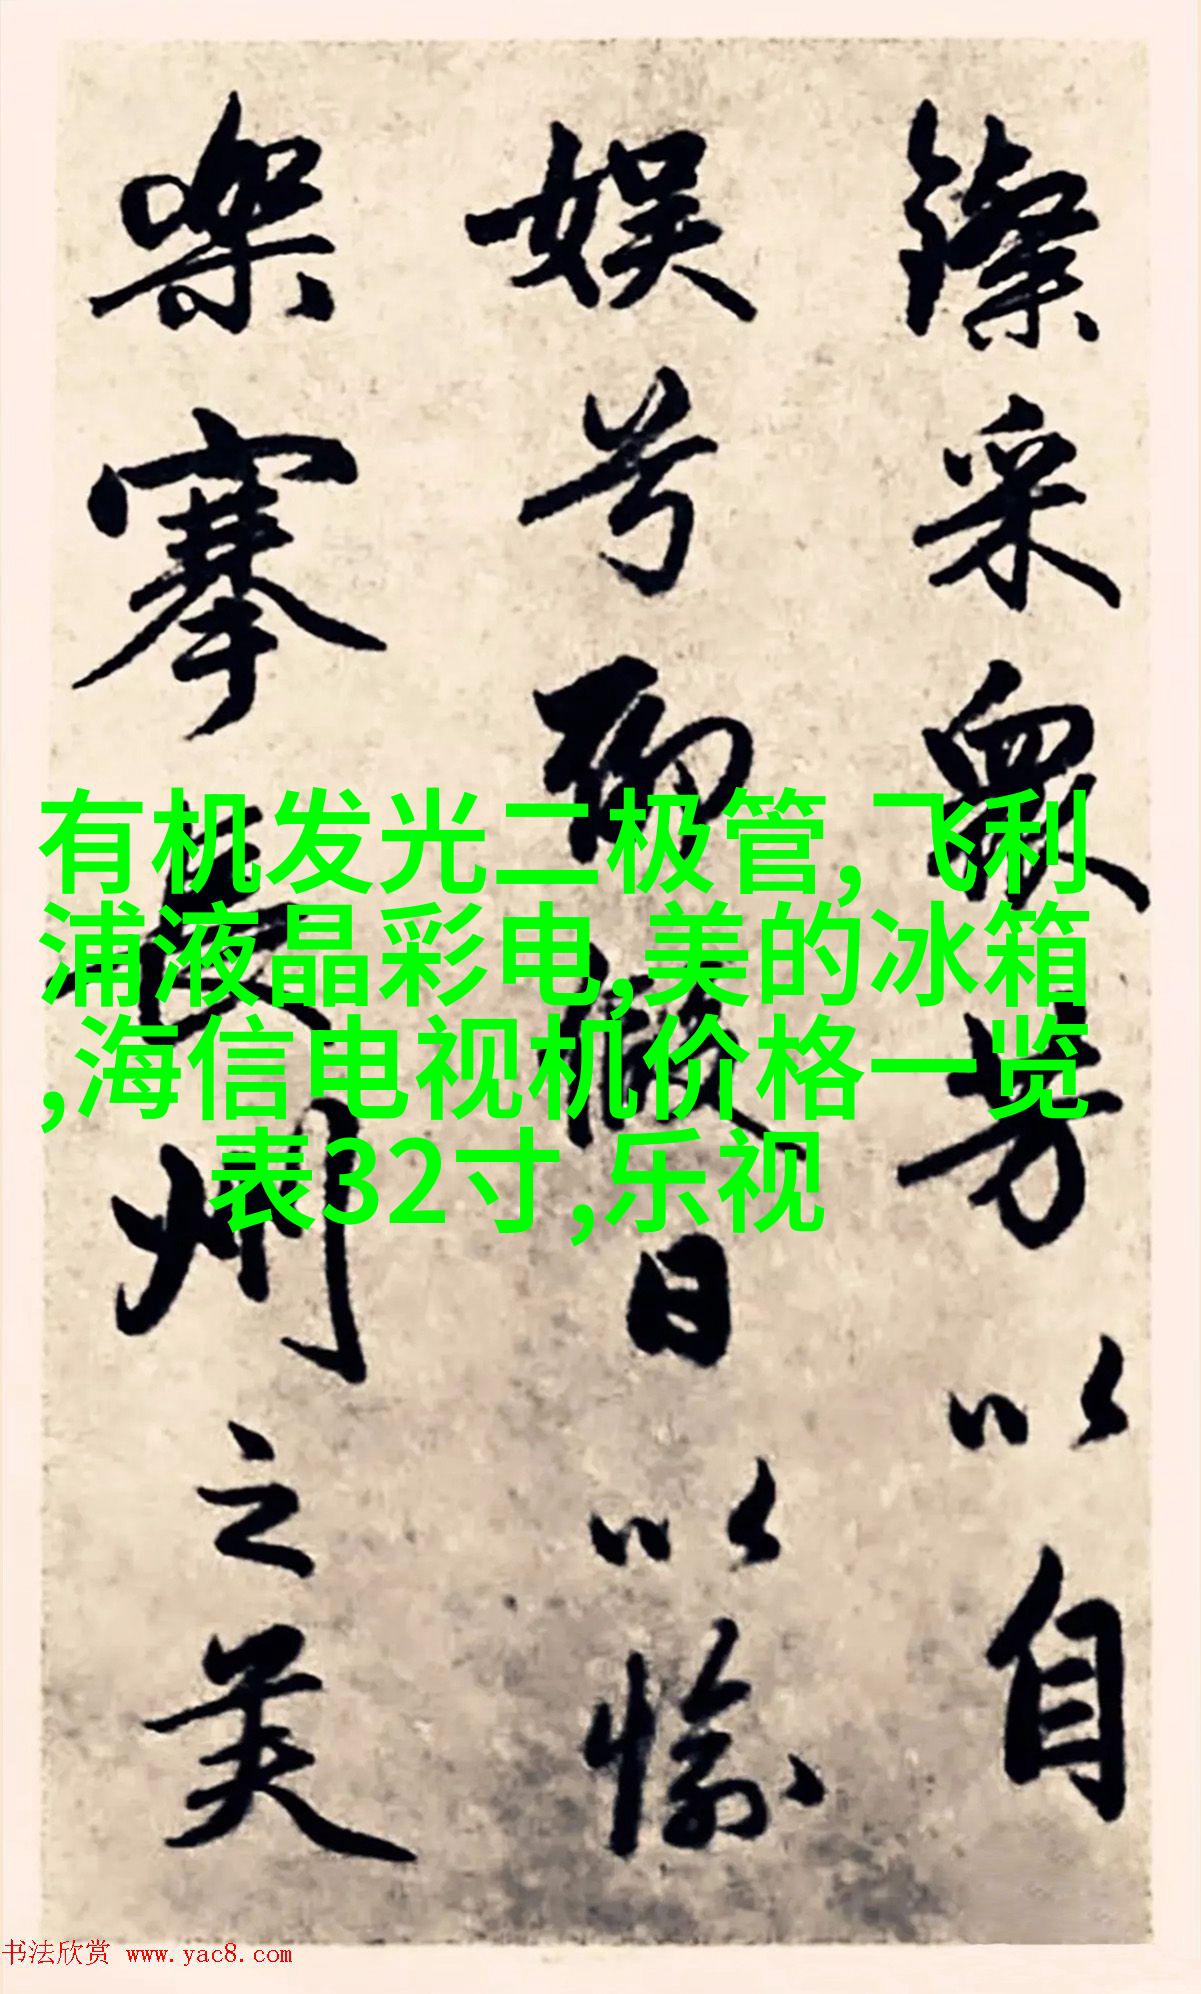 采眾芳以自
娱兮而日以愉
樂搴長州之芙
有机发光二极管,飞利
浦液晶彩电,美的冰箱
,海信电视机价格一览
表32寸,乐视
书法欣赏 www.yac8.com